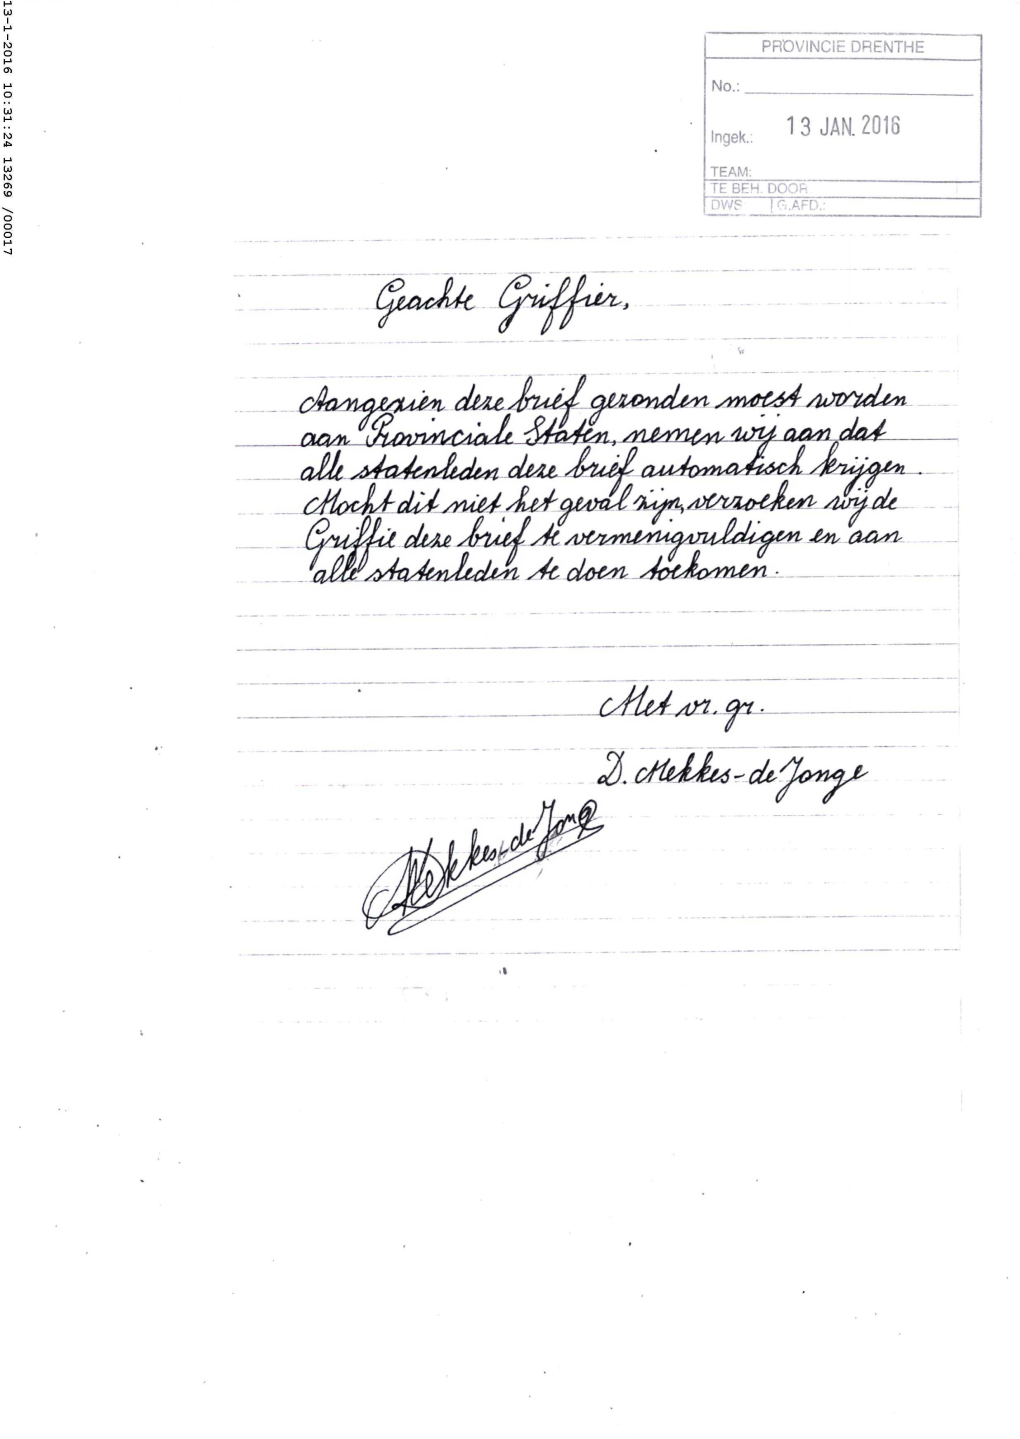 13-1-2016 10:31:24 13269 /00017
PROVINCIE DRENTHE
No.:
Ingek.: 13 JAN. 2016
TEAM:
TE BEH. DOOR
DWS G.AFD.:
Geachte Griffier,
Aangezien deze brief gezonden moest worden
aan Provinciale Staten, nemen wij aan dat
alle statenleden deze brief automatisch krijgen.
Mocht dit niet het geval zijn, verzoeken wij de
Griffie deze brief te vermenigvuldigen en aan
alle statenleden te doen toekomen.
Met vr. gr.
D. Mekkes-de Jonge
Mekkes-de Jonge